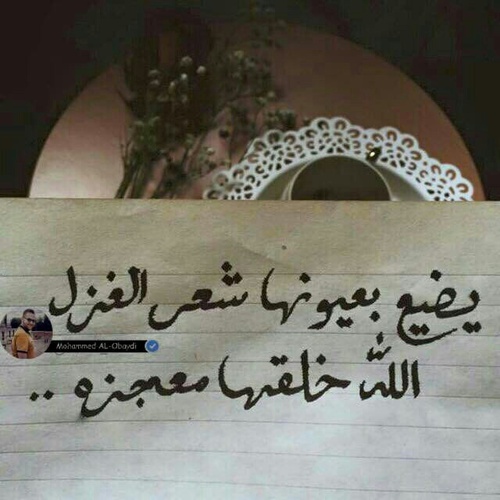 يضيع بعيونها شعر الغزل
Mohammed AL-Obaydi
الله خلقها معجزه ..